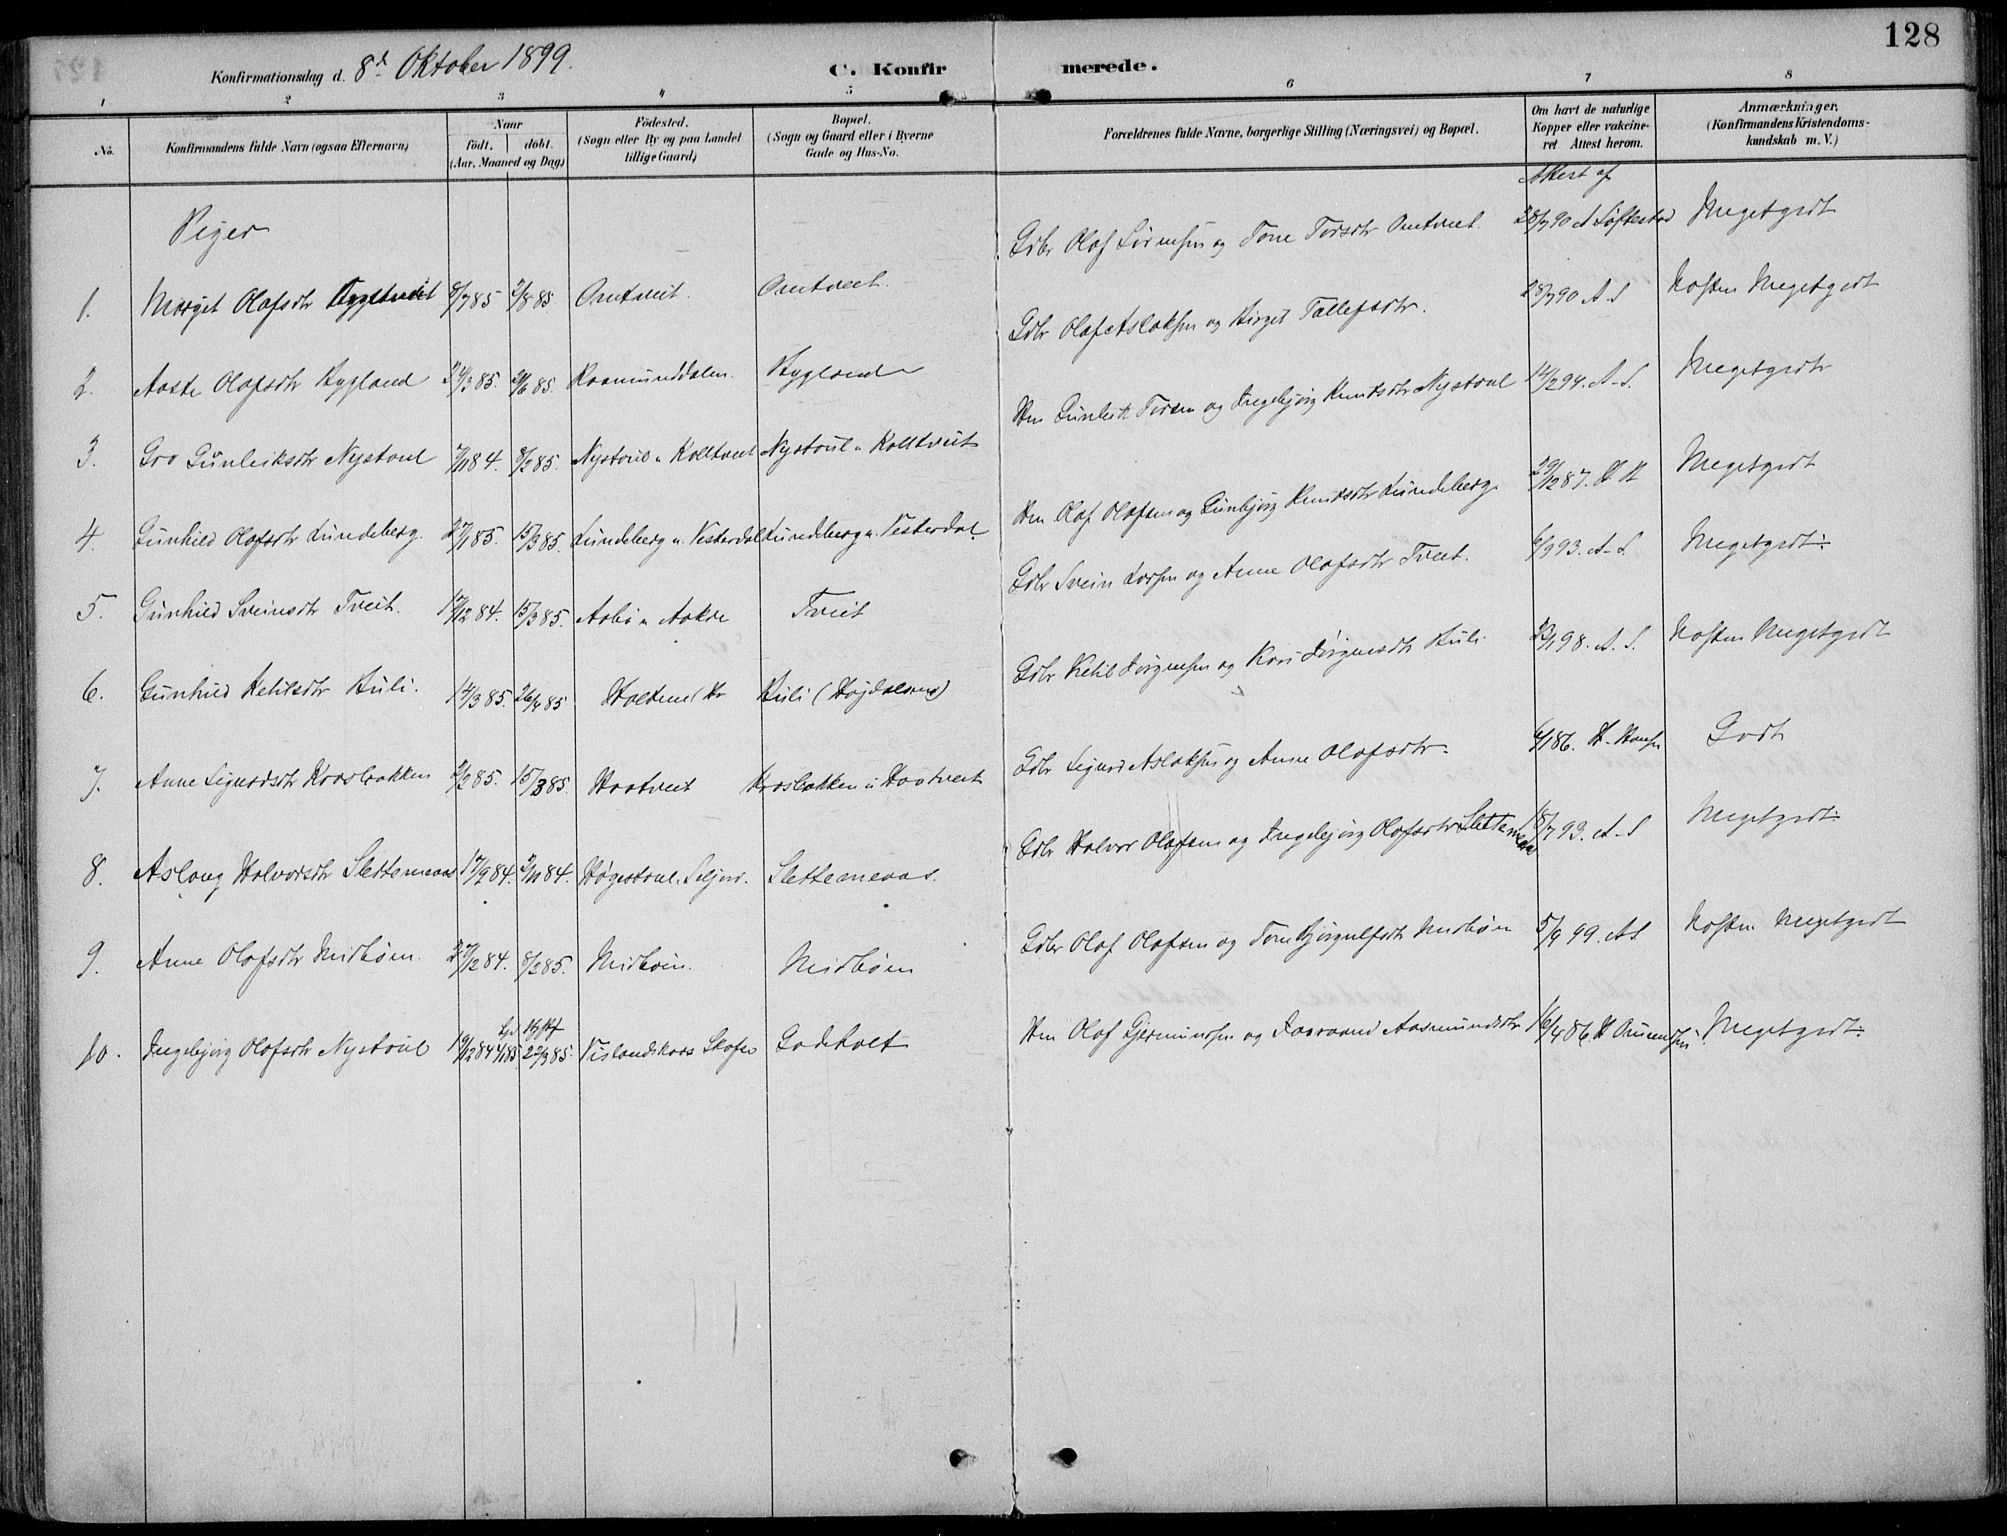 128
Konfirmationsdag d. 8d Oktober 1899.
C. Konfirmerede.
1 2 3 4 5 6 7 8
No.
Konfirmandens fulde Navn (ogsaa Efternavn)
Naar
født. døbt.
(Aar, Maaned og Dag)
Fødested.
(Sogn eller By og paa Landet
tillige Gaard)
Bopæl.
(Sogn og Gaard eller i Byerne
Gade og Hus-No.
Forældrenes fulde Navne, borgerlige Stilling (Næringsvei) og Bopæl.
Om havt de naturlige
Kopper eller vakcine-
ret Attest herom.
Anmærkninger,
(Konfirmandens Kristendoms-
kundskab m. V.)
Piger
Attest af
1. Margit Olafsdtr 8/7 85 2/8 85. Omtveit. Omtveit. Gdbr Olaf Sørensen og Tone Torsdtr Omtveit. 28/7 90 A Løftestad Megetgodt
2. Aaste Olafsdtr Rygland 24/3 85. 2/6 85. Raamunddalen. Rygland Gdbr Olaf Aslaksen og Birget Tallefsdtr. 28/7 90 A S Næsten Megetgodt
3. Gro Gunleiksdtr Nystoul 7/11 84. 8/2 85. Nystoul u. Kolltveit Nystoul u. Kolltveit Hm Gunleik Torsen og Ingebjørg Knutsdtr Nystoul 14/2 94. A. S. Megetgodt
4. Gunhild Olafsdtr Lundeberg. 27/1 85. 15/3 85. Lundeberg u. Vesterdal Lundeberg u. Vesterdal. Hm Olaf Olafsen og Gunbjørg Knutsdtr Lundeberg. 29/12 87. H H Megetgodt
5. Gunhild Sveinsdtr Tveit. 17/12 84. 15/3 85. Aabø u Aakre Tveit Gdbr Svein Larsen og Anne Olafsdtr Tveit. 6/9 93. A. S. Megetgodt ÷
6. Gunhild Ketilsdtr Huli. 14/3 85. 26/4 85 Huli (Høydalsmo) Gdbr Ketil Jørgensen og Kari Jørgensdtr Huli. 98. A. S. Næsten Megetgodt
7. Anne Sigurdsdtr Kaasbakken 2/2 85. 15/3 85. Haatveit Kaasbakken u Haatveit Gdbr Sigurd Aslaksen og Anne Olafsdtr. 6/1 86. H. Hansen Godt
8. Aslaug Halvorsdtr Slettemeaas 17/9 84. 2/11 84. Høgestoul. Seljord. Slettemeaas. Gdbr Halvor Olafsen og Ingebjørg Olafsdtr Slettemeaas 18/7 93. A. S Megetgodt
9. Anne Olafsdtr Midbøen. 27/12 84. 8/2 85. Midbøen. Midbøen Gdbr Olaf Olafsen og Tone Bjørgulfsdtr Midbøen 5/9 99. A S Næsten Megetgodt
10. Ingebjørg Olafsdtr Nystoul 19/12 84 4/1 85 22/3 85. Vislandskaas Skafsaa Godtholt Hm Olaf Gjermundsen og Aasmundsdtr 16/4 86 H Amundsen Megetgodt ÷